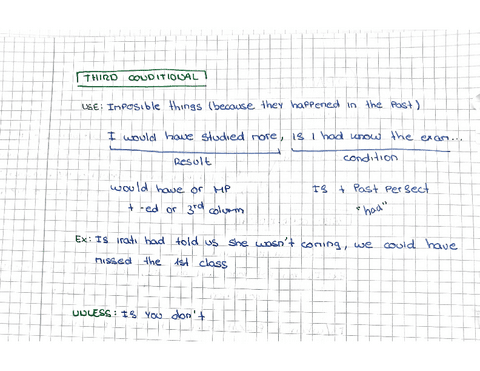 THIRD CONDITIONAL
USE: Imposible things (because they happened in the Past)
I would have studied more, if I had know the exam...
Result
condition
would have or MP
+ -ed or 3rd column
If + Past Perfect
"had"
Ex: If irati had told us she wasn't coming, we could have
missed the 1st class
UNLESS: If you don't